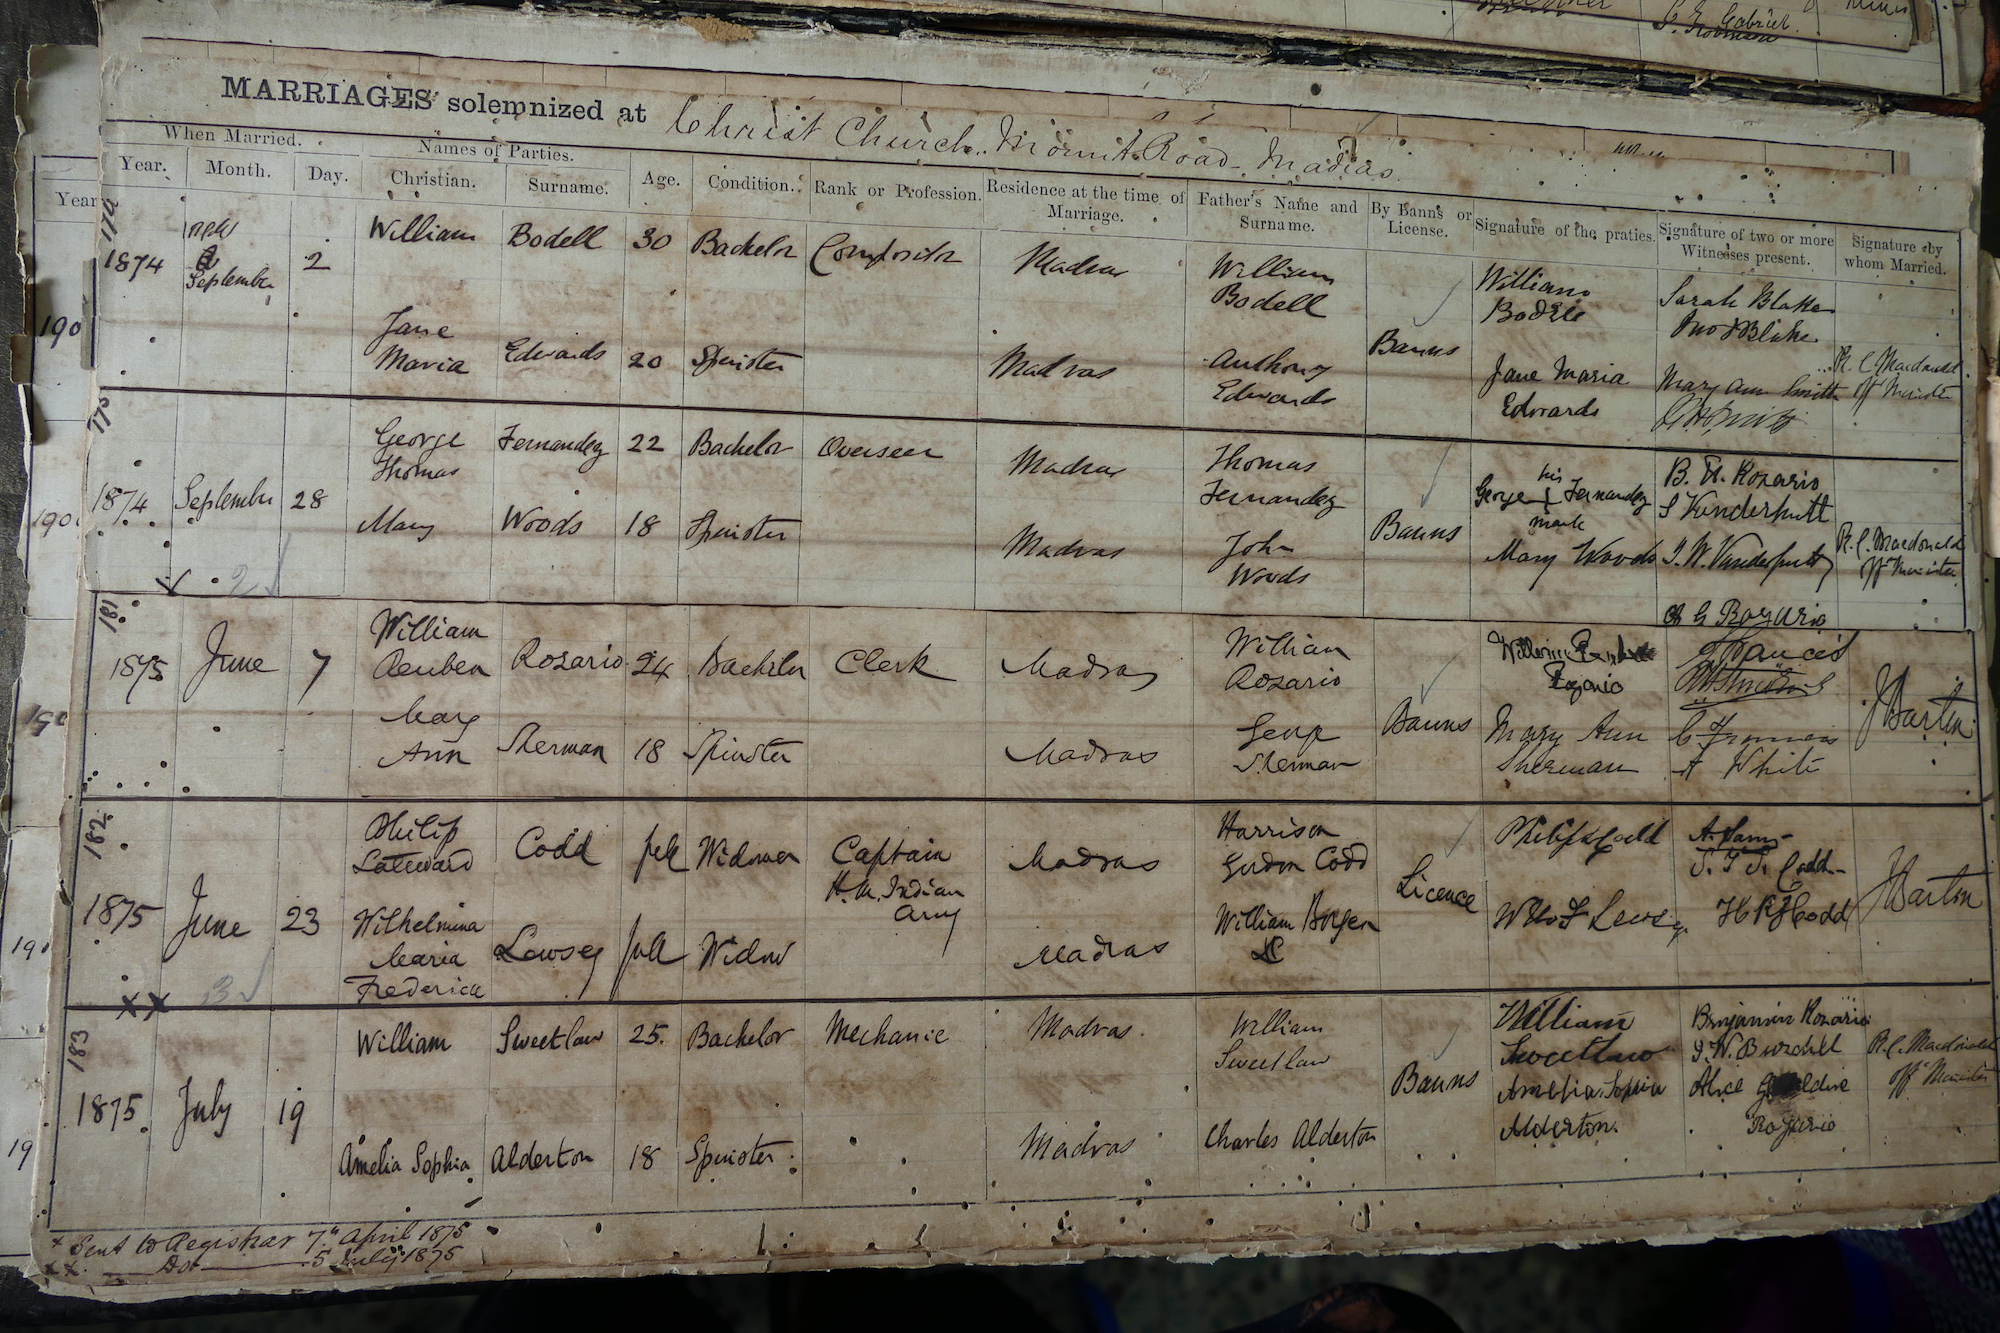 Gabriel
MARRIAGES solemnized at Christ Church Mount Road Madras
When Married. Names of Parties.
Year. Month. Day. Christian. Surname. Age. Condition. Rank or Profession. Residence at the time of Marriage. Father's Name and Surname. By Banns or License. Signature of the praties. Signature of two or more Witnesses present. Signature by whom Married.
Year
179
1874 September 2 William Bodell 30 Bachelor Compositor Madras William Bodell Banns William Bodell Sarah Blake
Blake
Jane Maria Edwards 20 Spinster Madras Anthony Edwards Jane Maria Edwards Mary Ann Smith R. C. Macdonald offg Minister
190
1874 September 28 George Thomas Fernandez 22 Bachelor Overseer Madras Thomas Fernandez Banns George his mark Fernandez B. A. Rozario
S Vanderputt
Mary Woods 18 Spinster Madras John Woods Mary Woods J. W. Vanderputt R. C. Macdonald offg Minister
G Rozario
190
181
1875 June 7 William Reuben Rozario 24 Bachelor Clerk Madras William Rozario Banns Rozario Francis
Mary Ann Sherman 18 Spinster Madras George Sherman Mary Ann Sherman A White J Barton
182
1875 June 23 Philip Codd full Widower Captain H. M. Indian Army Madras Harrison Gordon Codd Licence Philip Codd
Codd
Wilhelmina Maria Frederica Lewsey full Widow Madras William Lewsey Codd J Barton
183
1875 July 19 William Sweetlaw 25. Bachelor Mechanic Madras William Sweetlaw Banns William Sweetlaw Benjamin Rozario
J. W. Burchell
Amelia Sophia Alderton 18 Spinster Madras Charles Alderton Amelia Sophia Alderton. Alice Rozario R. C. Macdonald offg Minister
19
x Sent to Registrar 7th April 1875
xx. Do 5 July 1875